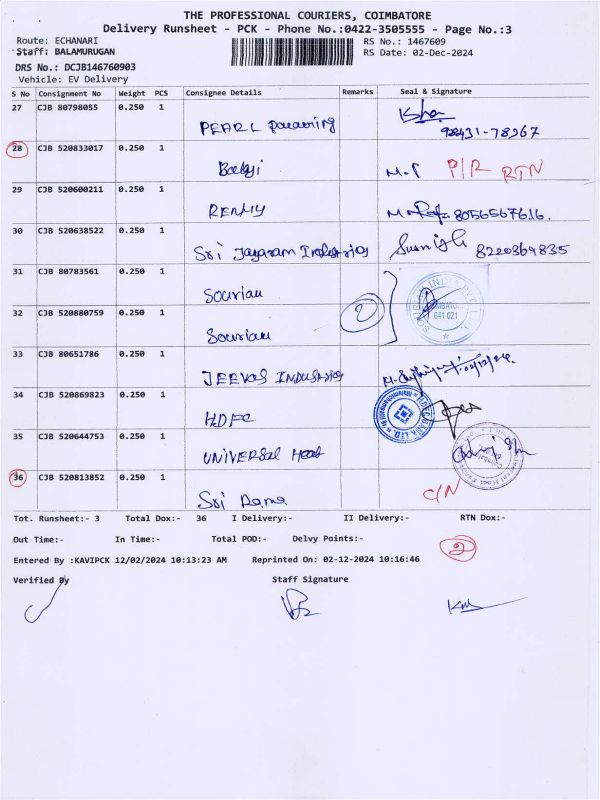 THE PROFESSIONAL COURIERS, COIMBATORE
Delivery Runsheet - PCK - Phone No.:0422-3505555 - Page No.:3
Route: ECHANARI
RS No.: 1467609
Staff: BALAMURUGAN
RS Date: 02-Dec-2024
DRS No.: DCJB146760903
Vehicle: EV Delivery
S No Consignment No Weight PCS Consignee Details Remarks Seal & Signature
27 CJB 80798055 0.250 1 PEARL
98431-78967
28 CJB 520833017 0.250 1 Balaji M.P P/R RTN
29 CJB 520600211 0.250 1 8056567616.
30 CJB 520638522 0.250 1 Sri Jayaram Industries 8220369835
31 CJB 80783561 0.250 1 Souriau
2
641 021
32 CJB 520880759 0.250 1 Souriau
33 CJB 80651786 0.250 1 JEEVAS INDUSTRIES 02/12/24.
34 CJB 520869823 0.250 1 HDFC
35 CJB 520644753 0.250 1 UNIVERSAL Heat
36 CJB 520813852 0.250 1 Sri Rama C/N
Tot. Runsheet:- 3 Total Dox:- 36 I Delivery:- II Delivery:- RTN Dox:-
Out Time:- In Time:- Total POD:- Delvy Points:-
2
Entered By :KAVIPCK 12/02/2024 10:13:23 AM Reprinted On: 02-12-2024 10:16:46
Verified By Staff Signature